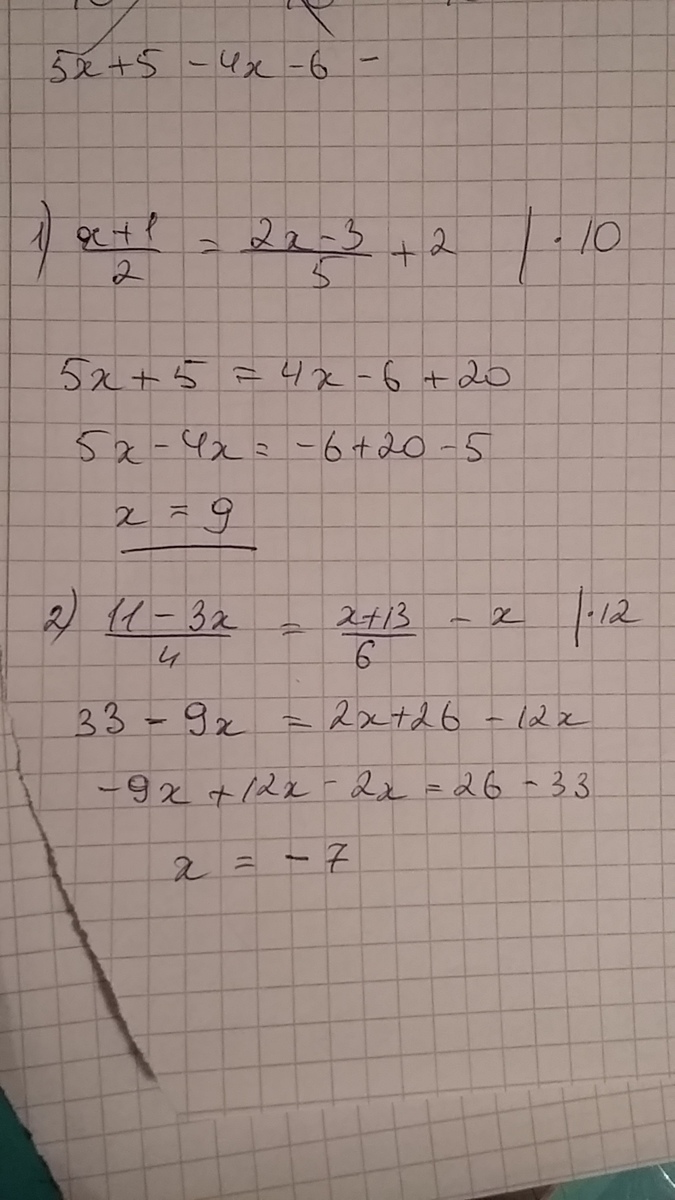 5x+5 -4x -6 -
1) x+1/2 = 2x-3/5 + 2 | · 10
5x + 5 = 4x - 6 + 20
5x - 4x = -6 + 20 - 5
x = 9
2) 11 - 3x/4 = x+13/6 - x | · 12
33 - 9x = 2x + 26 - 12x
-9x + 12x - 2x = 26 - 33
x = -7